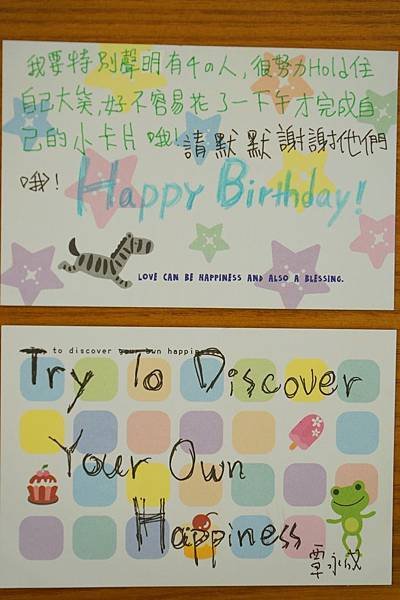 我要特別聲明有4の人，很努力Hold住
自己大笑，好不容易花了一下午才完成自
己的小卡片哦！請默默謝謝他們
哦！
Happy Birthday!
LOVE CAN BE HAPPINESS AND ALSO A BLESSING.
to discover your own happiness
Try To Discover
Your Own
Happiness
覃冰成